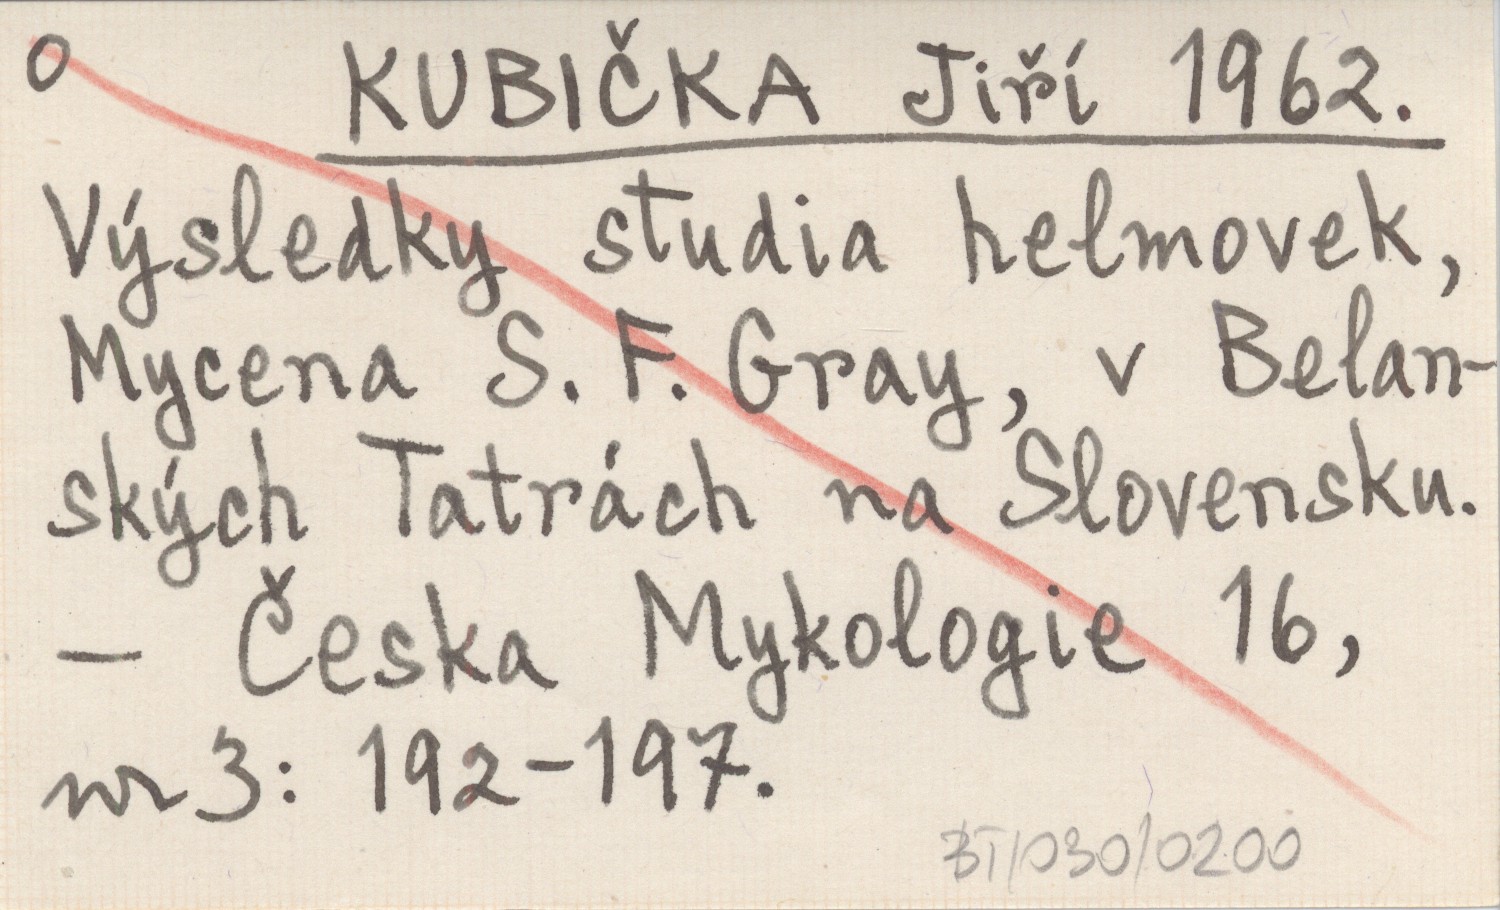 O KUBIČKA Jiří 1962.
Výsledky studia helmovek,
Mycena S. F. Gray, v Belan-
ských Tatrách na Slovensku.
– Česka Mykologie 16,
nr 3: 192–197.
BT/030/0200